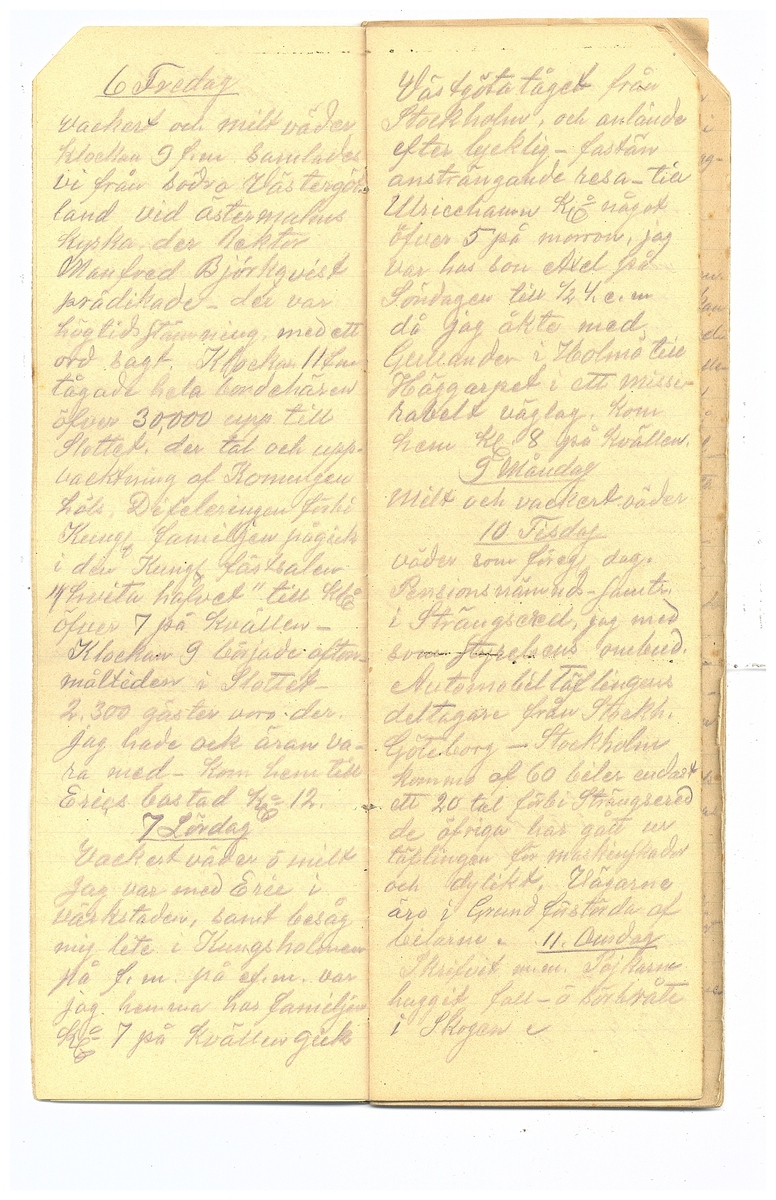 6 Fredag
Vackert och milt väder
klockan 9 f.m. samlades
vi från södra Västergöt-
land vid östermalms
kyrka, der Rektor
Manfred Björkqvist
prädikade – der var
högtidsstämning, med ett
ord sagt. Klockan 11 f.m.
tågade hela bondehären
öfver 30,000 upp till
Slottet, der tal och upp-
vacktning af Konungen
höls. Defeleringen förbi
Kungl familjen pågick
i den Kungl fästsalen
"hvita hafvet" till Kl
öfver 7 på Kvällen –
Klockan 9 började afton-
måltiden i Slottet –
2,300 gäster voro der.
jag hade ock äran va-
ra med – kom hem till
Erics bostad Kl 12.
7 Lördag
Vackert väder ö milt
jag var med Eric i
värkstaden, samt besåg
mig lite i Kungsholmen
på f.m. på ef.m. var
jag hemma hos familjen
Kl 7 på Kvällen gick
Västgöta tåget från
Stockholm, och anlände
efter lycklig – fastän
ansträngande resa – till
Ulricehamn Kl något
öfver 5 på morron, jag
var hos son Axel på
Söndagen till 1/2 4 e.m
då jag åkte med
i Holmö till
Häggarpet i ett misse-
rabelt väglag, kom
hem Kl. 8 på Kvällen.
9 Måndag
Milt och vackert väder
10 Tisdag
väder som föreg. dag.
Pensionsnämnd-samtr.
i Strängsered, jag med
som styrelsens ombud.
Automobil täflingens
deltagare från Stockh.
Göteborg – Stockholm
kommo af 60 biler endast
ett 20 tal förbi Strängsered
de öfriga har gått ur
täflingen för maskinskador
och dylikt. Vägarne
äro i Grund förstörda af
bilarne. 11. Onsdag
Skrifvit m.m. Pojkarne
huggit fall – ö törrträte
i Skogen